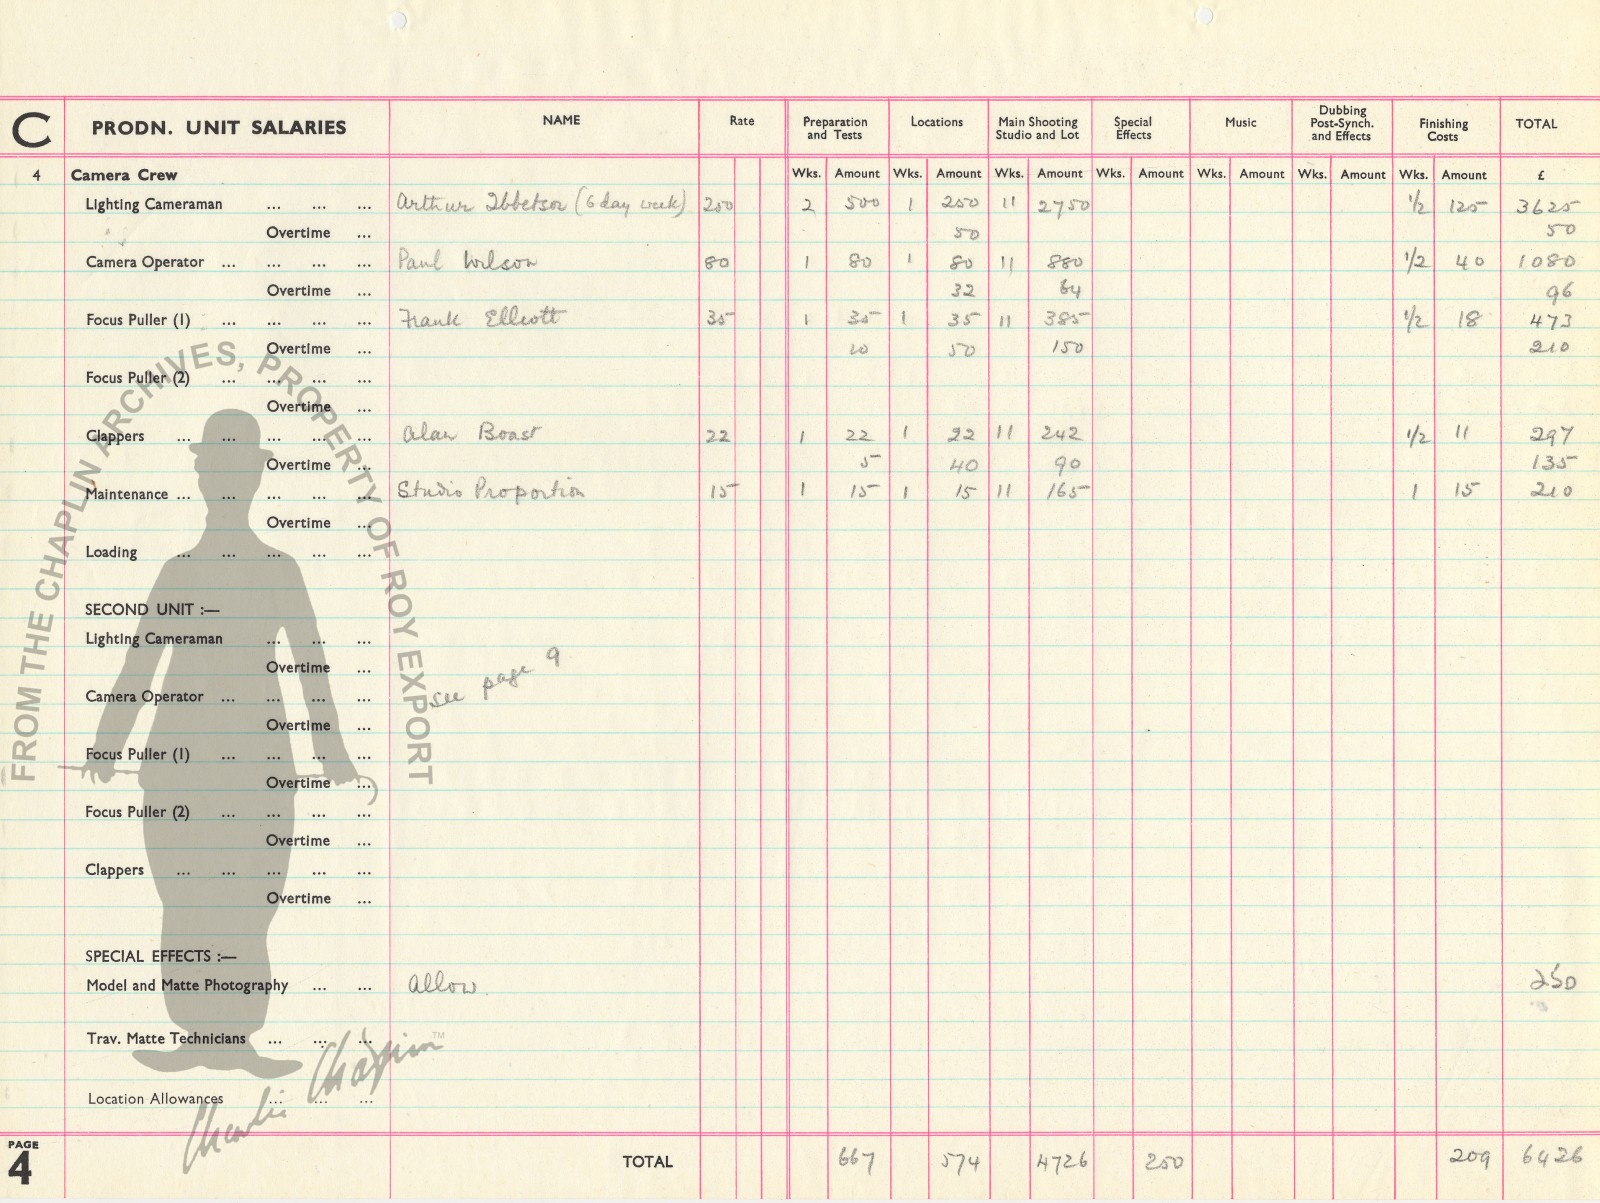 C PRODN. UNIT SALARIES NAME Rate Preparation and Tests Locations Main Shooting Studio and Lot Special Effects Music Dubbing Post-Synch. and Effects Finishing Costs TOTAL
4 Camera Crew Wks. Amount Wks. Amount Wks. Amount Wks. Amount Wks. Amount Wks. Amount Wks. Amount £
Lighting Cameraman ... ... ... Arthur Ibbetson (6 day week) 250 2 500 1 250 11 2750 1/2 125 3625
Overtime ... 50 50
Camera Operator ... ... ... ... Paul Wilson 80 1 80 1 80 11 880 1/2 40 1080
Overtime ... 32 64 96
Focus Puller (1) ... ... ... ... Frank Elliott 35 1 35 1 35 11 385 1/2 18 473
Overtime ... 10 50 150 210
Focus Puller (2) ... ... ... ...
Overtime ...
Clappers ... ... ... ... ... Alan Boast 22 1 22 1 22 11 242 1/2 11 297
Overtime ... 5 40 90 135
Maintenance ... ... ... ... ... Studio Proportion 15 1 15 1 15 11 165 1 15 210
Overtime ...
Loading ... ... ... ... ...
SECOND UNIT :—
Lighting Cameraman ... ... ...
Overtime ...
see page 9
Camera Operator ... ... ... ...
Overtime ...
Focus Puller (1) ... ... ... ...
Overtime ...
Focus Puller (2) ... ... ... ...
Overtime ...
Clappers ... ... ... ... ...
Overtime ...
SPECIAL EFFECTS :—
Model and Matte Photography ... ... Allow 250
Trav. Matte Technicians ... ... ...
Location Allowances ... ... ...
PAGE 4 TOTAL 667 574 4726 250 209 6426
FROM THE CHAPLIN ARCHIVES, PROPERTY OF ROY EXPORT
Charlie Chaplin ™